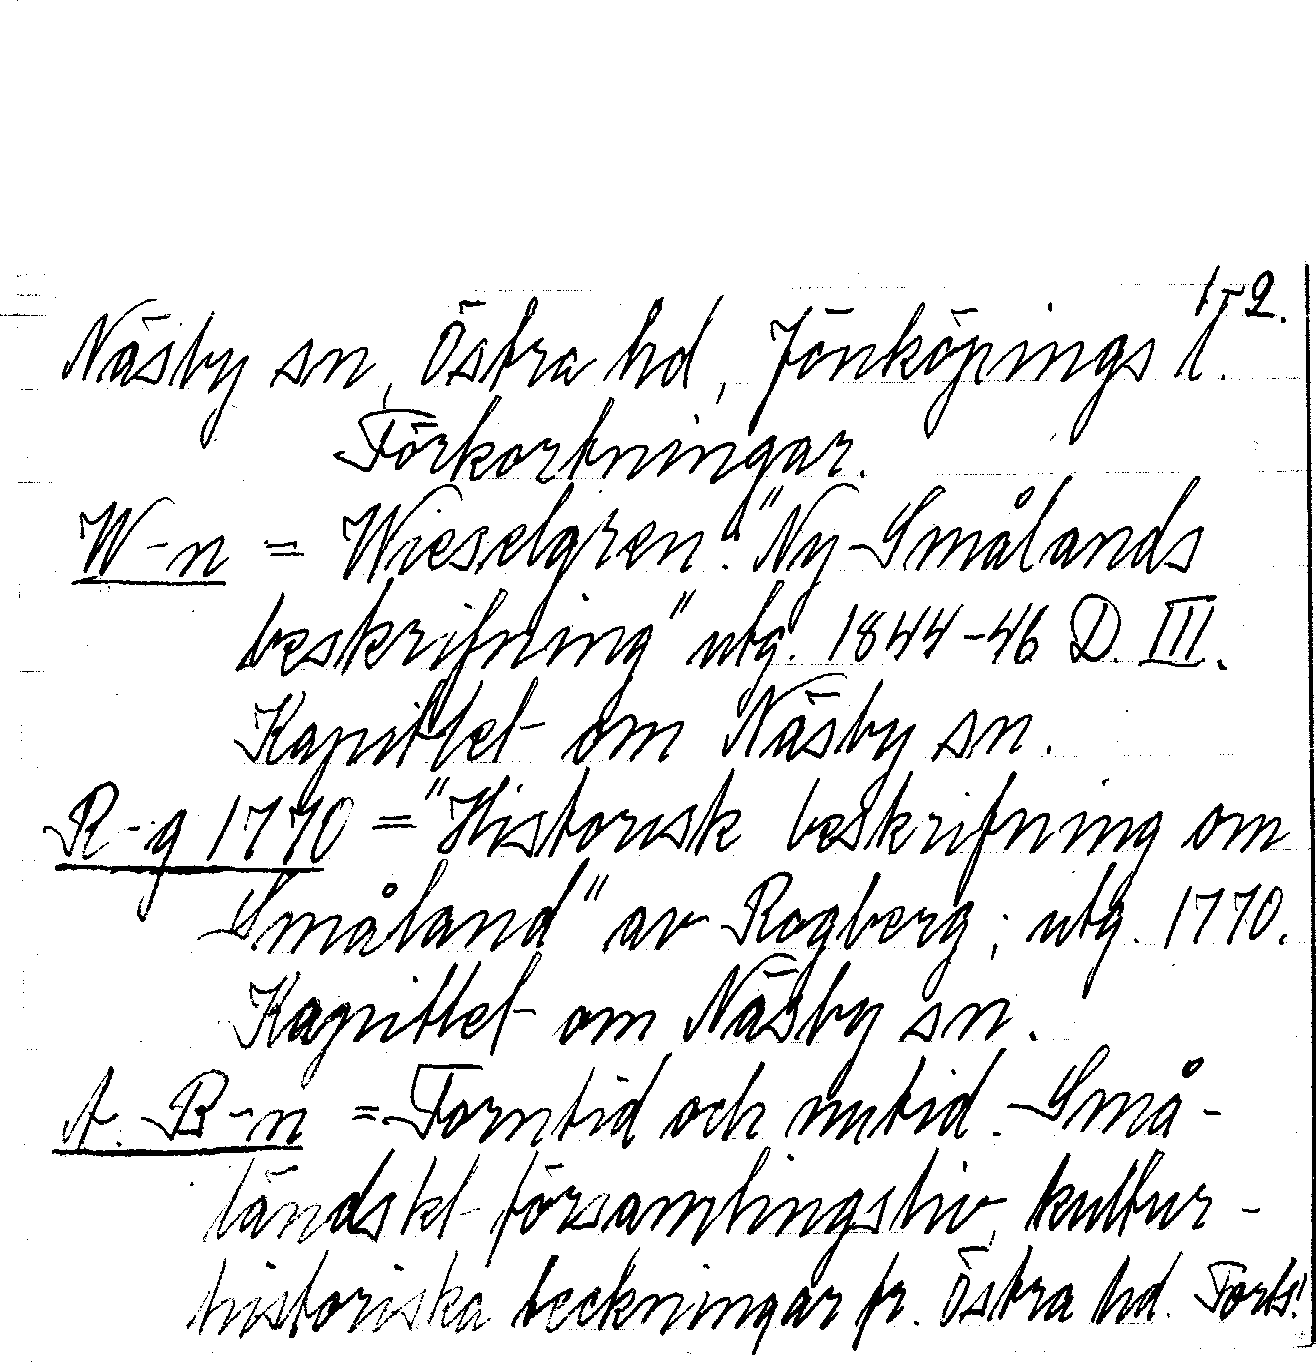 1-2.
Näsby sn, Östra hd, Jönköpings l.
Förkortningar.
W-n = Wieselgren: "Ny Smålands
beskrifning" utg. 1844-46 D. III.
Kapitlet om Näsby sn.
R-g 1770 = "Historisk beskrifning om
Småland" av Rogberg; utg. 1770.
Kapitlet om Näsby sn.
A. B-n = Forntid och nutid. Små-
ländskt församlingsliv, kultur-
historiska teckningar fr. Östra hd. Forts!